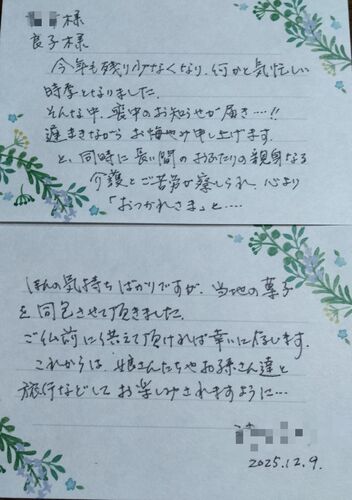 様
良子様
今年も残り少なくなり、何かと気忙しい
時季となりました。
そんな中、喪中のお知らせが届き…!!
遅まきながらお悔やみ申し上げます
と、同時に長い間のおふたりの親身なる
介護とご苦労が察しられ、心より
「おつかれさま」と….
ほんの気持ちばかりですが、当地の菓子
を同包させて頂きました。
ご仏前に供えて頂ければ幸いに存じます。
これからは、娘さんたちやお孫さん達と
旅行などしてお楽しみされますように…
2025.12.9.